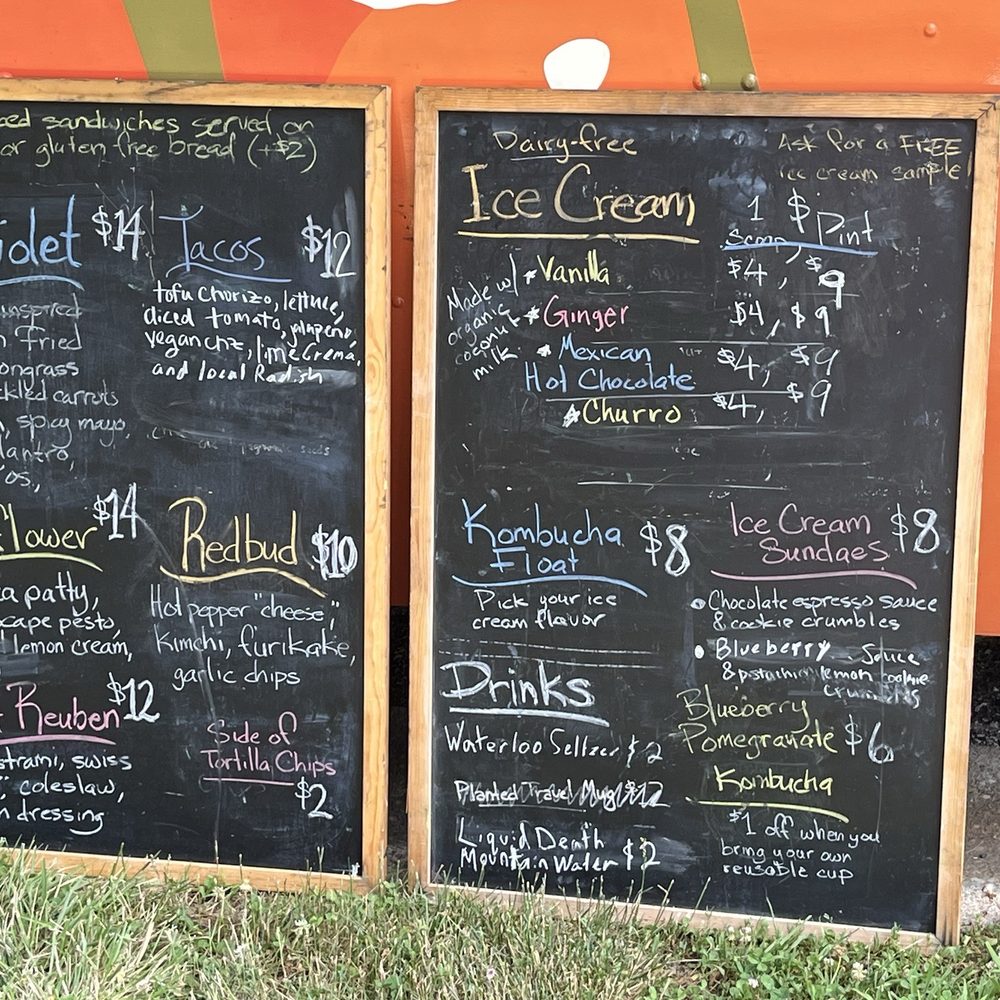 sandwiches served on
or gluten free bread (+$2)
$14
Tacos $12
tofu chorizo, lettuce,
diced tomato, jalapeno,
vegan chz, lime crema,
and local Radish
fried
carrots
, spicy mayo,
$14
patty,
pesto,
lemon cream,
Reuben $12
swiss
coleslaw,
dressing
Redbud $10
Hot pepper "cheese",
Kimchi, furikake,
garlic chips
Side of
Tortilla Chips
$2
Dairy-free
Ice Cream
Ask for a FREE
ice cream sample!
1 $ Pint
Scoop,
Made w/
organic
coconut
milk
* Vanilla $4, $9
* Ginger $4, $9
* Mexican
Hot Chocolate $4, $9
* Churro $4, $9
Kombucha
Float $8
Pick your ice
cream flavor
Ice Cream
Sundaes $8
• Chocolate espresso sauce
& cookie crumbles
• Blueberry Sauce
& pistachio lemon cookie
crumbles
Drinks
Waterloo Seltzer $2
Planted Travel Mug $12
Liquid Death
Mountain Water $2
Blueberry
Pomegranate $6
Kombucha
$1 off when you
bring your own
reusable cup